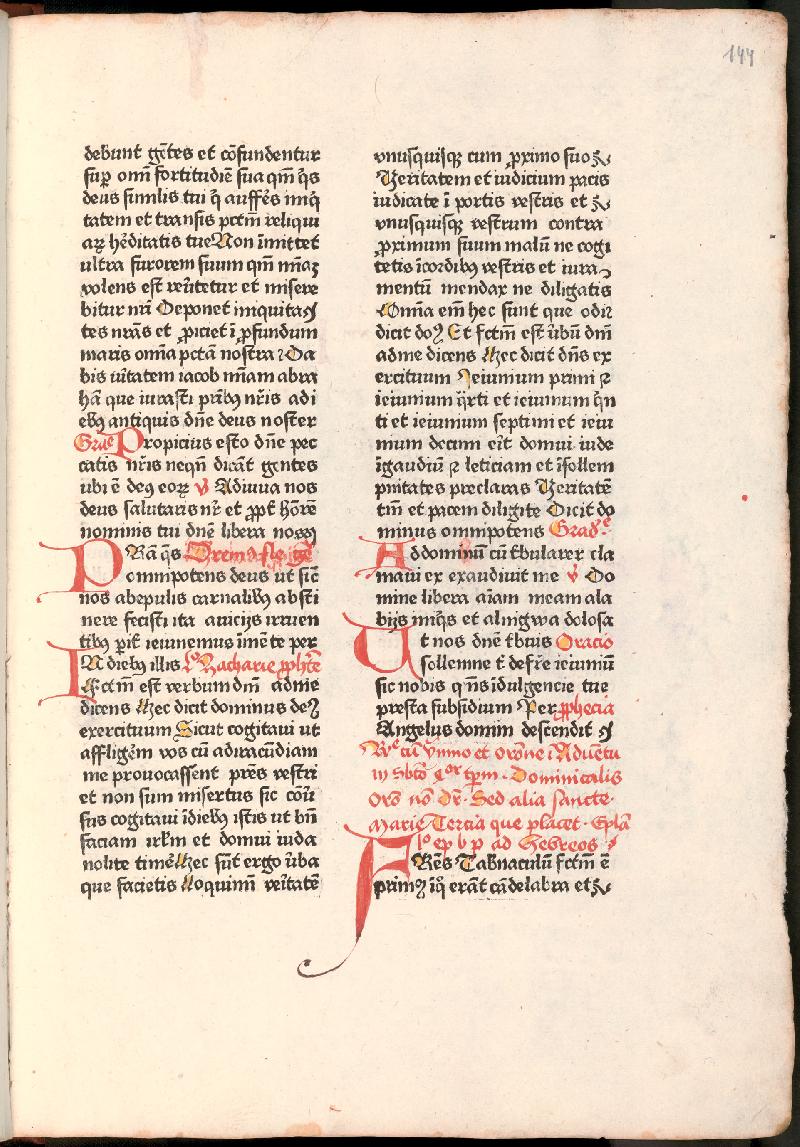 144
debunt gētes et cōfundentur
sup̄ om̄i fortitudiē sua qm̄ q̄s
deus similis tui q̄ auffēs iniq̄
tatem et transis pctm̄ reliqui
aꝝ hēditatis tue Non īmittet
ultra furorem suum qm̄ mīaꝫ
volens est reūtetur et misere
bitur nr̄i Deponet iniquita
tes nr̄as et ꝓiciet ī ꝓfundum
maris omīa pctā nostra Da
bis ūitatem iacob mīam abra
hā que iurasti pr̄ibꝫ nr̄is a di
ebꝫ antiquis dn̄e deus noster
Gradᵉ Propicius esto dn̄e pec
catis nr̄is neqn̄ dicāt gentes
ubi ē deꝰ eoꝝ v̄ Adiuua nos
deus salutaris nr̄ et ꝓpt̄ hōrē
nominis tui dn̄e libera nos
P Rā q̄s
omnipotens deus ut sic̄
nos abepulis carnalibꝫ absti
nere fecisti ita auicijs irruen
tibꝫ perit̄ ieiunemus īmēte per
IN diebꝫ illis Zacharie ꝓphtē
Fctm̄ est verbum dn̄i adme
dicens Hec dicit dominus deꝰ
exercituum Sicut cogitaui ut
affligēm vos cū adiracūdiam
me prouocassent pr̄es vestri
et non sum misertus sic cōū
sus cogitaui īdiebꝫ istis ut bn̄
faciam irl̄m et domui iuda
nolite timē Hec sūt ergo ūba
que facietis Loquimī veritatē
vnusquisqꝫ cum ꝓximo suo
Veritatem et iudicium pacis
iudicate ī portis vestris et
vnusquisqꝫ vestrum contra
ꝓximum suum malū ne cogi
tetis īcordibꝫ vestris et iura
mentū mendax ne diligatis
Omīa em̄ hec sunt que odi
dicit do Et fctm̄ est ūbū dn̄i
adme dicens Hec dicit dn̄s ex
ercituum Ieiunium primi ꝛ
ieiunium q̄rti et ieiunium q̄n
ti et ieiunium septimi et ieiu
nium decimi erit̄ domui iude
īgaudiū ꝛ leticiam et īsollem
pnitates preclaras Veritatē
tm̄ et pacem diligite Dicit do
minus omnipotens Gradᵉ
Addominū cū t̄bularer cla
maui ex exaudiuit me v̄ Do
mine libera aīam meam ala
bijs inīq̄s et alingwa dolosa
Ut nos dn̄e t̄buis Oracio
sollemne t̄ defr̄e ieiuniū
sic nobis qn̄s īdulgencie tue
presta subsidium Per ꝓphecia
Angelus domini descendit
Rᵉ cū ymno et orōne ī Aduentu
in Sbt̄o qᵒʳ tp̄rm Dominicalis
Orō nō dr̄ Sed alia sancte
Marie Tercia que placet Epl̄a
ad Hebreos
FRēs Tab̄naculū fctm̄ ē
primū īq̄ erāt cādelabra et